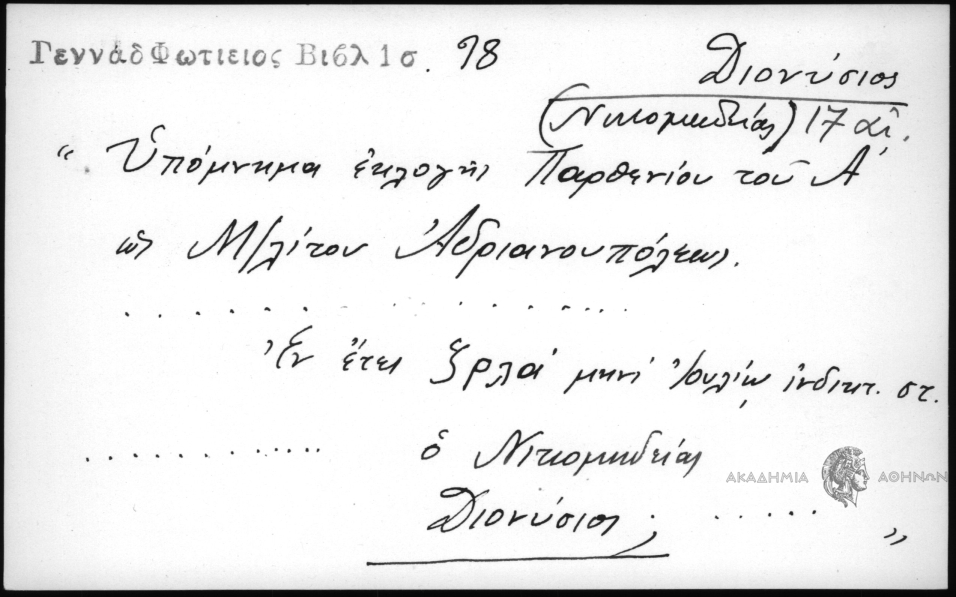 Γεννάδ Φωτιειος Βιβλ 1σ. 98
Διονύσιος
(Νικομηδείας) 17 αἰ.
“ Ὑπόμνημα ἐκλογῆς Παρθενίου τοῦ Α΄
ὡς Μ/λίτου Ἀδριανουπόλεως.
. . . . . . . . . . . . . . . . .
Ἐν ἔτει ζρλά μηνί Ἰουλίῳ ἰνδικτ. στ.
. . . . . . . . . . . . . ὁ Νικομηδείας
ΑΚΑΔΗΜΙΑ ΑΘΗΝΩΝ
Διονύσιος . . . . . . . ”